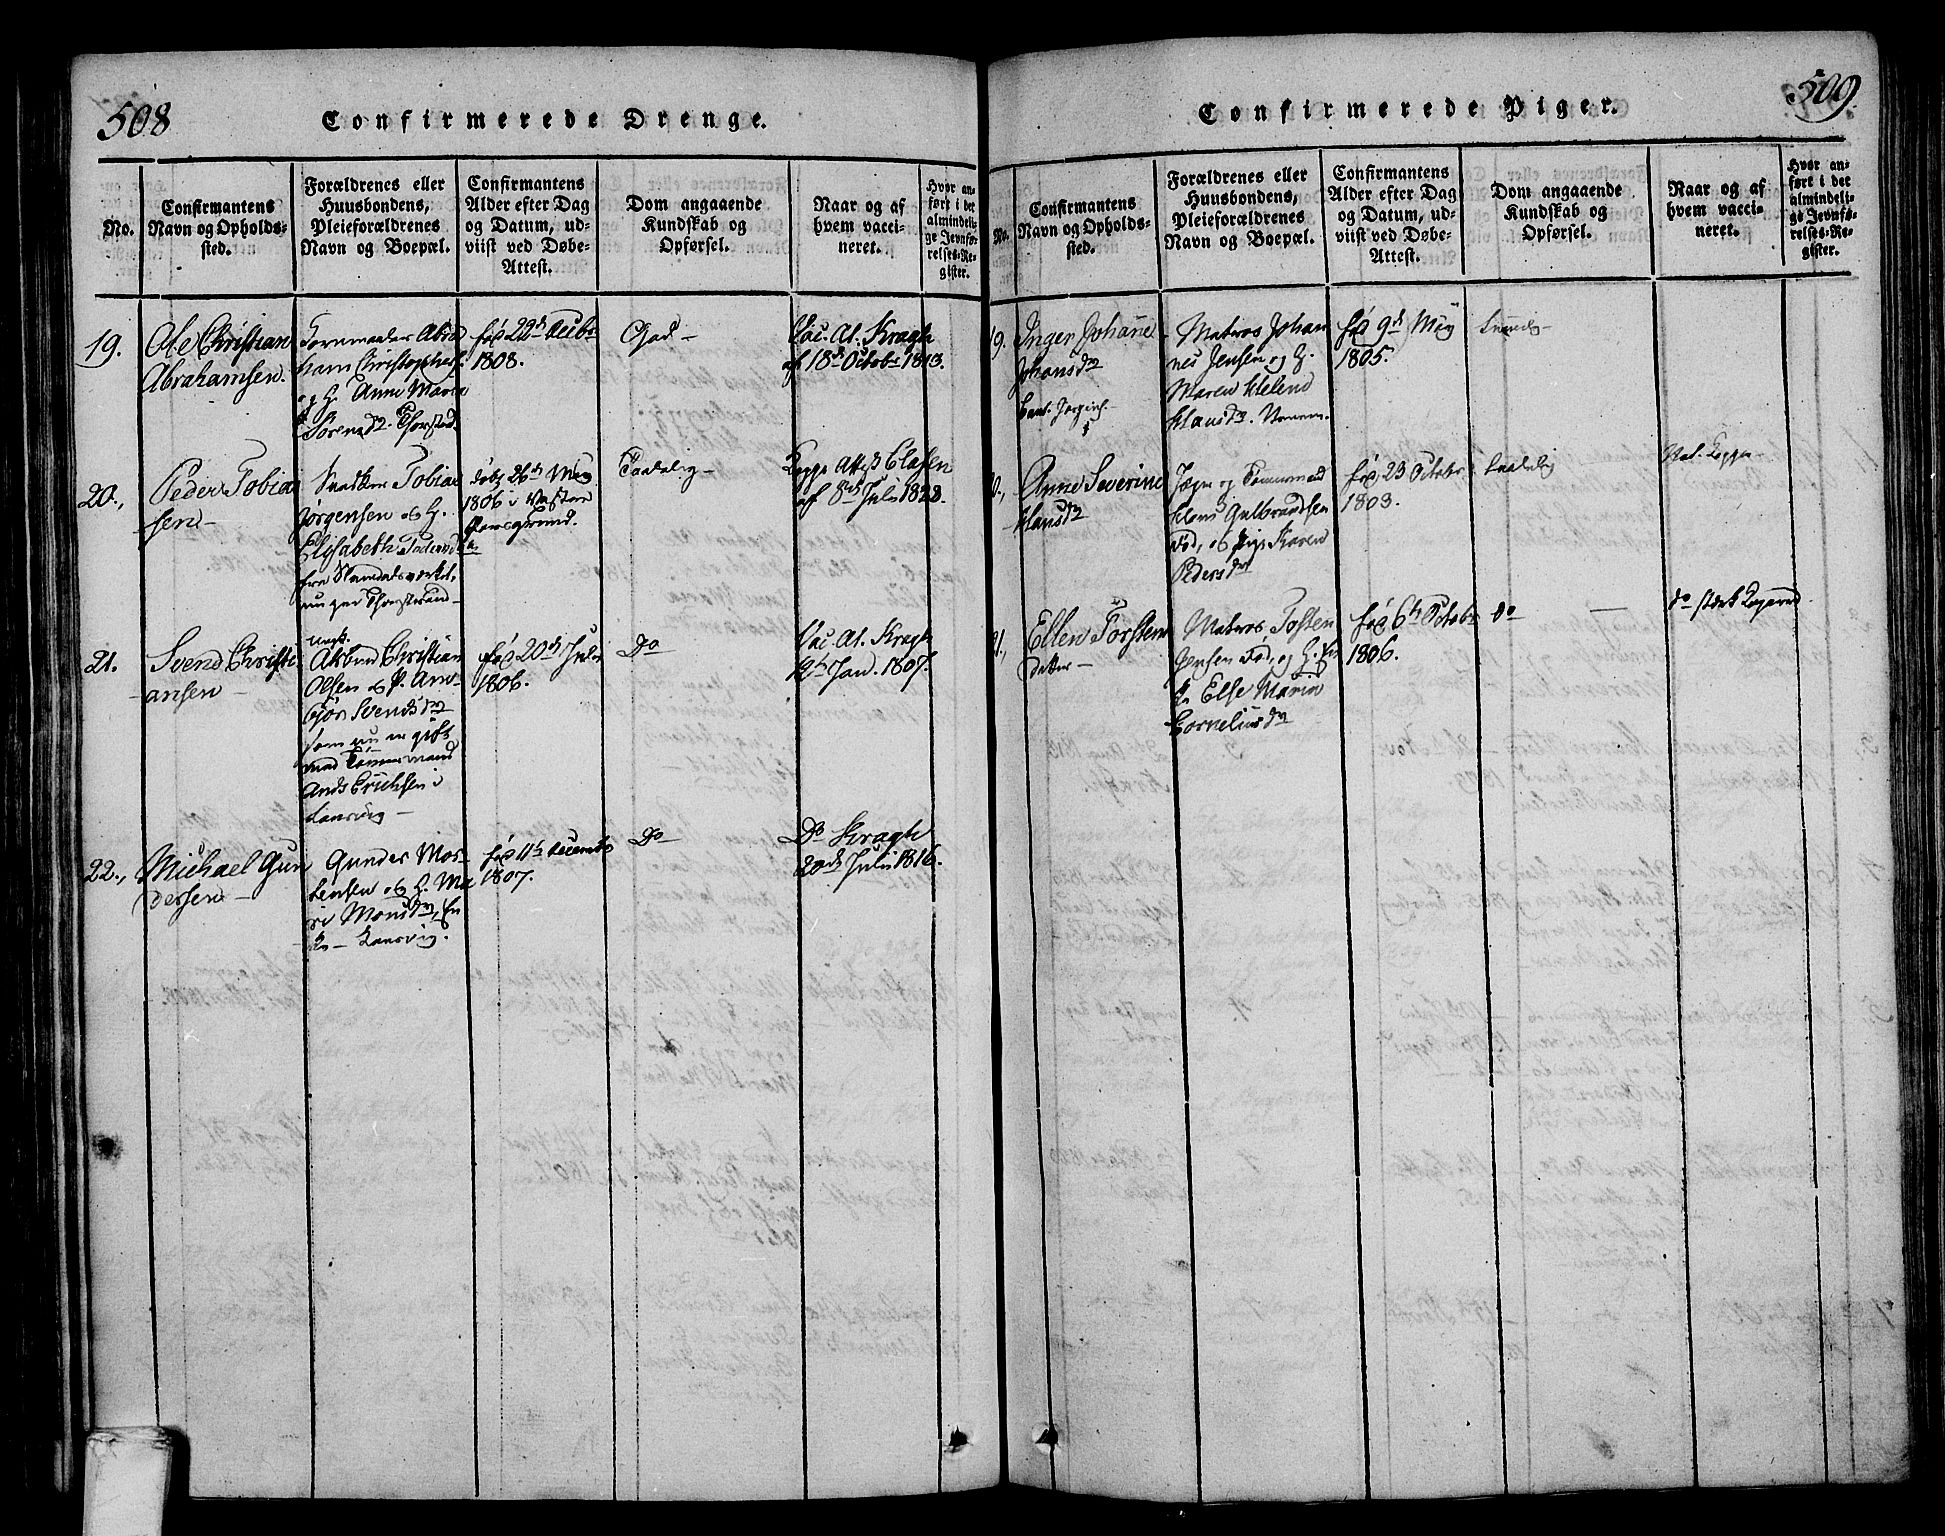 508
Confirmerede Drenge.
No.
Confirmantens
Navn og Opholds-
sted.
Forældrenes eller
Huusbondens,
Pleieforældrenes
Navn og Boepæl.
Confirmantens
Alder efter Dag
og Datum, ud-
viist ved Døbe-
Attest.
Dom angaaende
Kundskab og
Opførsel.
Naar og af
hvem vacci-
neret.
Hvor an-
ført i det
almindeli-
ge Jevnfø-
relses-Re-
gister.
19.
Ole Christian
Abrahamsen.
Abra
ham Christophers.
og H. Anne Maria
Sørensdr.
fød 22de Decbr
1808.
God -
Vac. At. Kragh
af 18de Octobr 1813.
20.,
Peder Tobia
sen -
Snedker Tobias
Jørgensen og H.
Elisabeth
fra
døbt 26de May
1806 i Vestre
Porsgrund.
Taalelig -
Koppe Attest Clasen
af 8de Juli 1823.
21.
Svend Christi
ansen -
ungk.
Christian
Olsen og P.
Svendsdr
som nu er gift
med Tømmermand
Ands Erichsen i
Langvig -
fød 20de Juli
1806.
Do
Vac. At. Kragh
12te Jan. 1807.
22.,
Michael Gun
dersen -
Gunder Mor-
tensen og H. Ma
ri Monsdr,
Langvig.
fød 11te Decembr
1807.
Do
Do Kragh
20de Juli 1816.
509.
Confirmerede Piger.
No.
Confirmantens
Navn og Opholds-
sted.
Forældrenes eller
Huusbondens,
Pleieforældrenes
Navn og Boepæl.
Confirmantens
Alder efter Dag
og Datum, ud-
viist ved Døbe-
Attest.
Dom angaaende
Kundskab og
Opførsel.
Naar og af
hvem vacci-
neret.
Hvor an-
ført i det
almindeli-
ge Jevnfø-
relses-Re-
gister.
19.
Inger Johanne
Johansdr
Matros Johan
nes Jensen og H.
Maren Helene
Klausdr.
fød 9de May
1805.
20.,
Anne Severine
Klausdr
Tømmermand
Klaus Gulbrandsen
død, og Karen
Pedersdr
fød 23 Octobr
1803.
Taalelig
Nat. Kopper -
21.,
Ellen Torsten
datter -
Matros Tosten
Jensen død, og H.
Else Maria
Corneliusdr
fød 6te Octobr
1806.
do
do